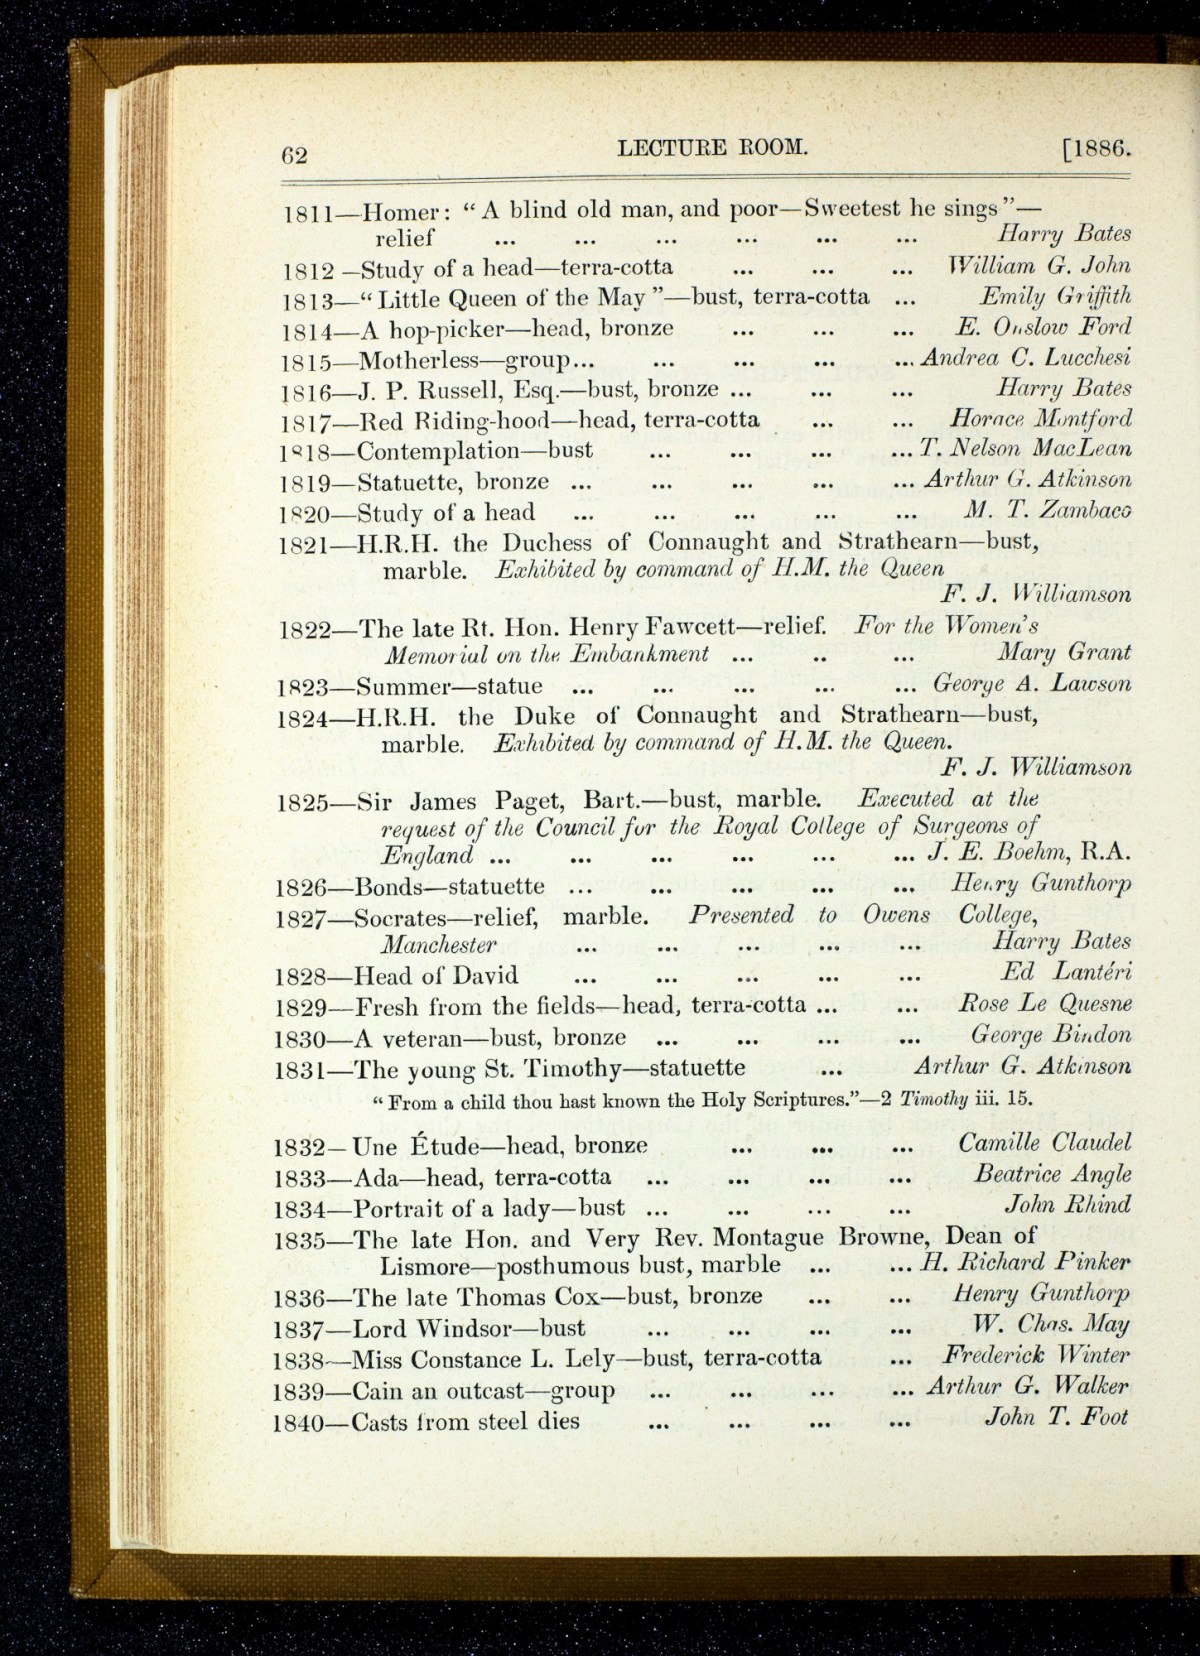 62 LECTURE ROOM. [1886.
1811—Homer: “A blind old man, and poor—Sweetest he sings”—
relief ... ... ... ... ... ... Harry Bates
1812—Study of a head—terra-cotta ... ... ... William G. John
1813—“Little Queen of the May”—bust, terra-cotta ... Emily Griffith
1814—A hop-picker—head, bronze ... ... ... E. Onslow Ford
1815—Motherless—group... ... ... ... ... Andrea C. Lucchesi
1816—J. P. Russell, Esq.—bust, bronze ... ... ... Harry Bates
1817—Red Riding-hood—head, terra-cotta ... ... Horace Montford
1818—Contemplation—bust ... ... ... ... T. Nelson MacLean
1819—Statuette, bronze ... ... ... ... ... Arthur G. Atkinson
1820—Study of a head ... ... ... ... ... M. T. Zambaco
1821—H.R.H. the Duchess of Connaught and Strathearn—bust,
marble. Exhibited by command of H.M. the Queen
F. J. Williamson
1822—The late Rt. Hon. Henry Fawcett—relief. For the Women's
Memorial on the Embankment ... .. ... Mary Grant
1823—Summer—statue ... ... ... ... ... George A. Lawson
1824—H.R.H. the Duke of Connaught and Strathearn—bust,
marble. Exhibited by command of H.M. the Queen.
F. J. Williamson
1825—Sir James Paget, Bart.—bust, marble. Executed at the
request of the Council for the Royal College of Surgeons of
England ... ... ... ... ... ... J. E. Boehm, R.A.
1826—Bonds—statuette ... ... ... ... ... Henry Gunthorp
1827—Socrates—relief, marble. Presented to Owens College,
Manchester ... ... ... ... ... Harry Bates
1828—Head of David ... ... ... ... ... Ed Lantéri
1829—Fresh from the fields—head, terra-cotta ... ... Rose Le Quesne
1830—A veteran—bust, bronze ... ... ... ... George Bindon
1831—The young St. Timothy—statuette ... Arthur G. Atkinson
“From a child thou hast known the Holy Scriptures.”—2 Timothy iii. 15.
1832—Une Étude—head, bronze ... ... ... Camille Claudel
1833—Ada—head, terra-cotta ... ... ... ... Beatrice Angle
1834—Portrait of a lady—bust ... ... ... ... John Rhind
1835—The late Hon. and Very Rev. Montague Browne, Dean of
Lismore—posthumous bust, marble ... ... H. Richard Pinker
1836—The late Thomas Cox—bust, bronze ... ... Henry Gunthorp
1837—Lord Windsor—bust ... ... ... ... W. Chas. May
1838—Miss Constance L. Lely—bust, terra-cotta ... Frederick Winter
1839—Cain an outcast—group ... ... ... ... Arthur G. Walker
1840—Casts from steel dies ... ... ... ... John T. Foot